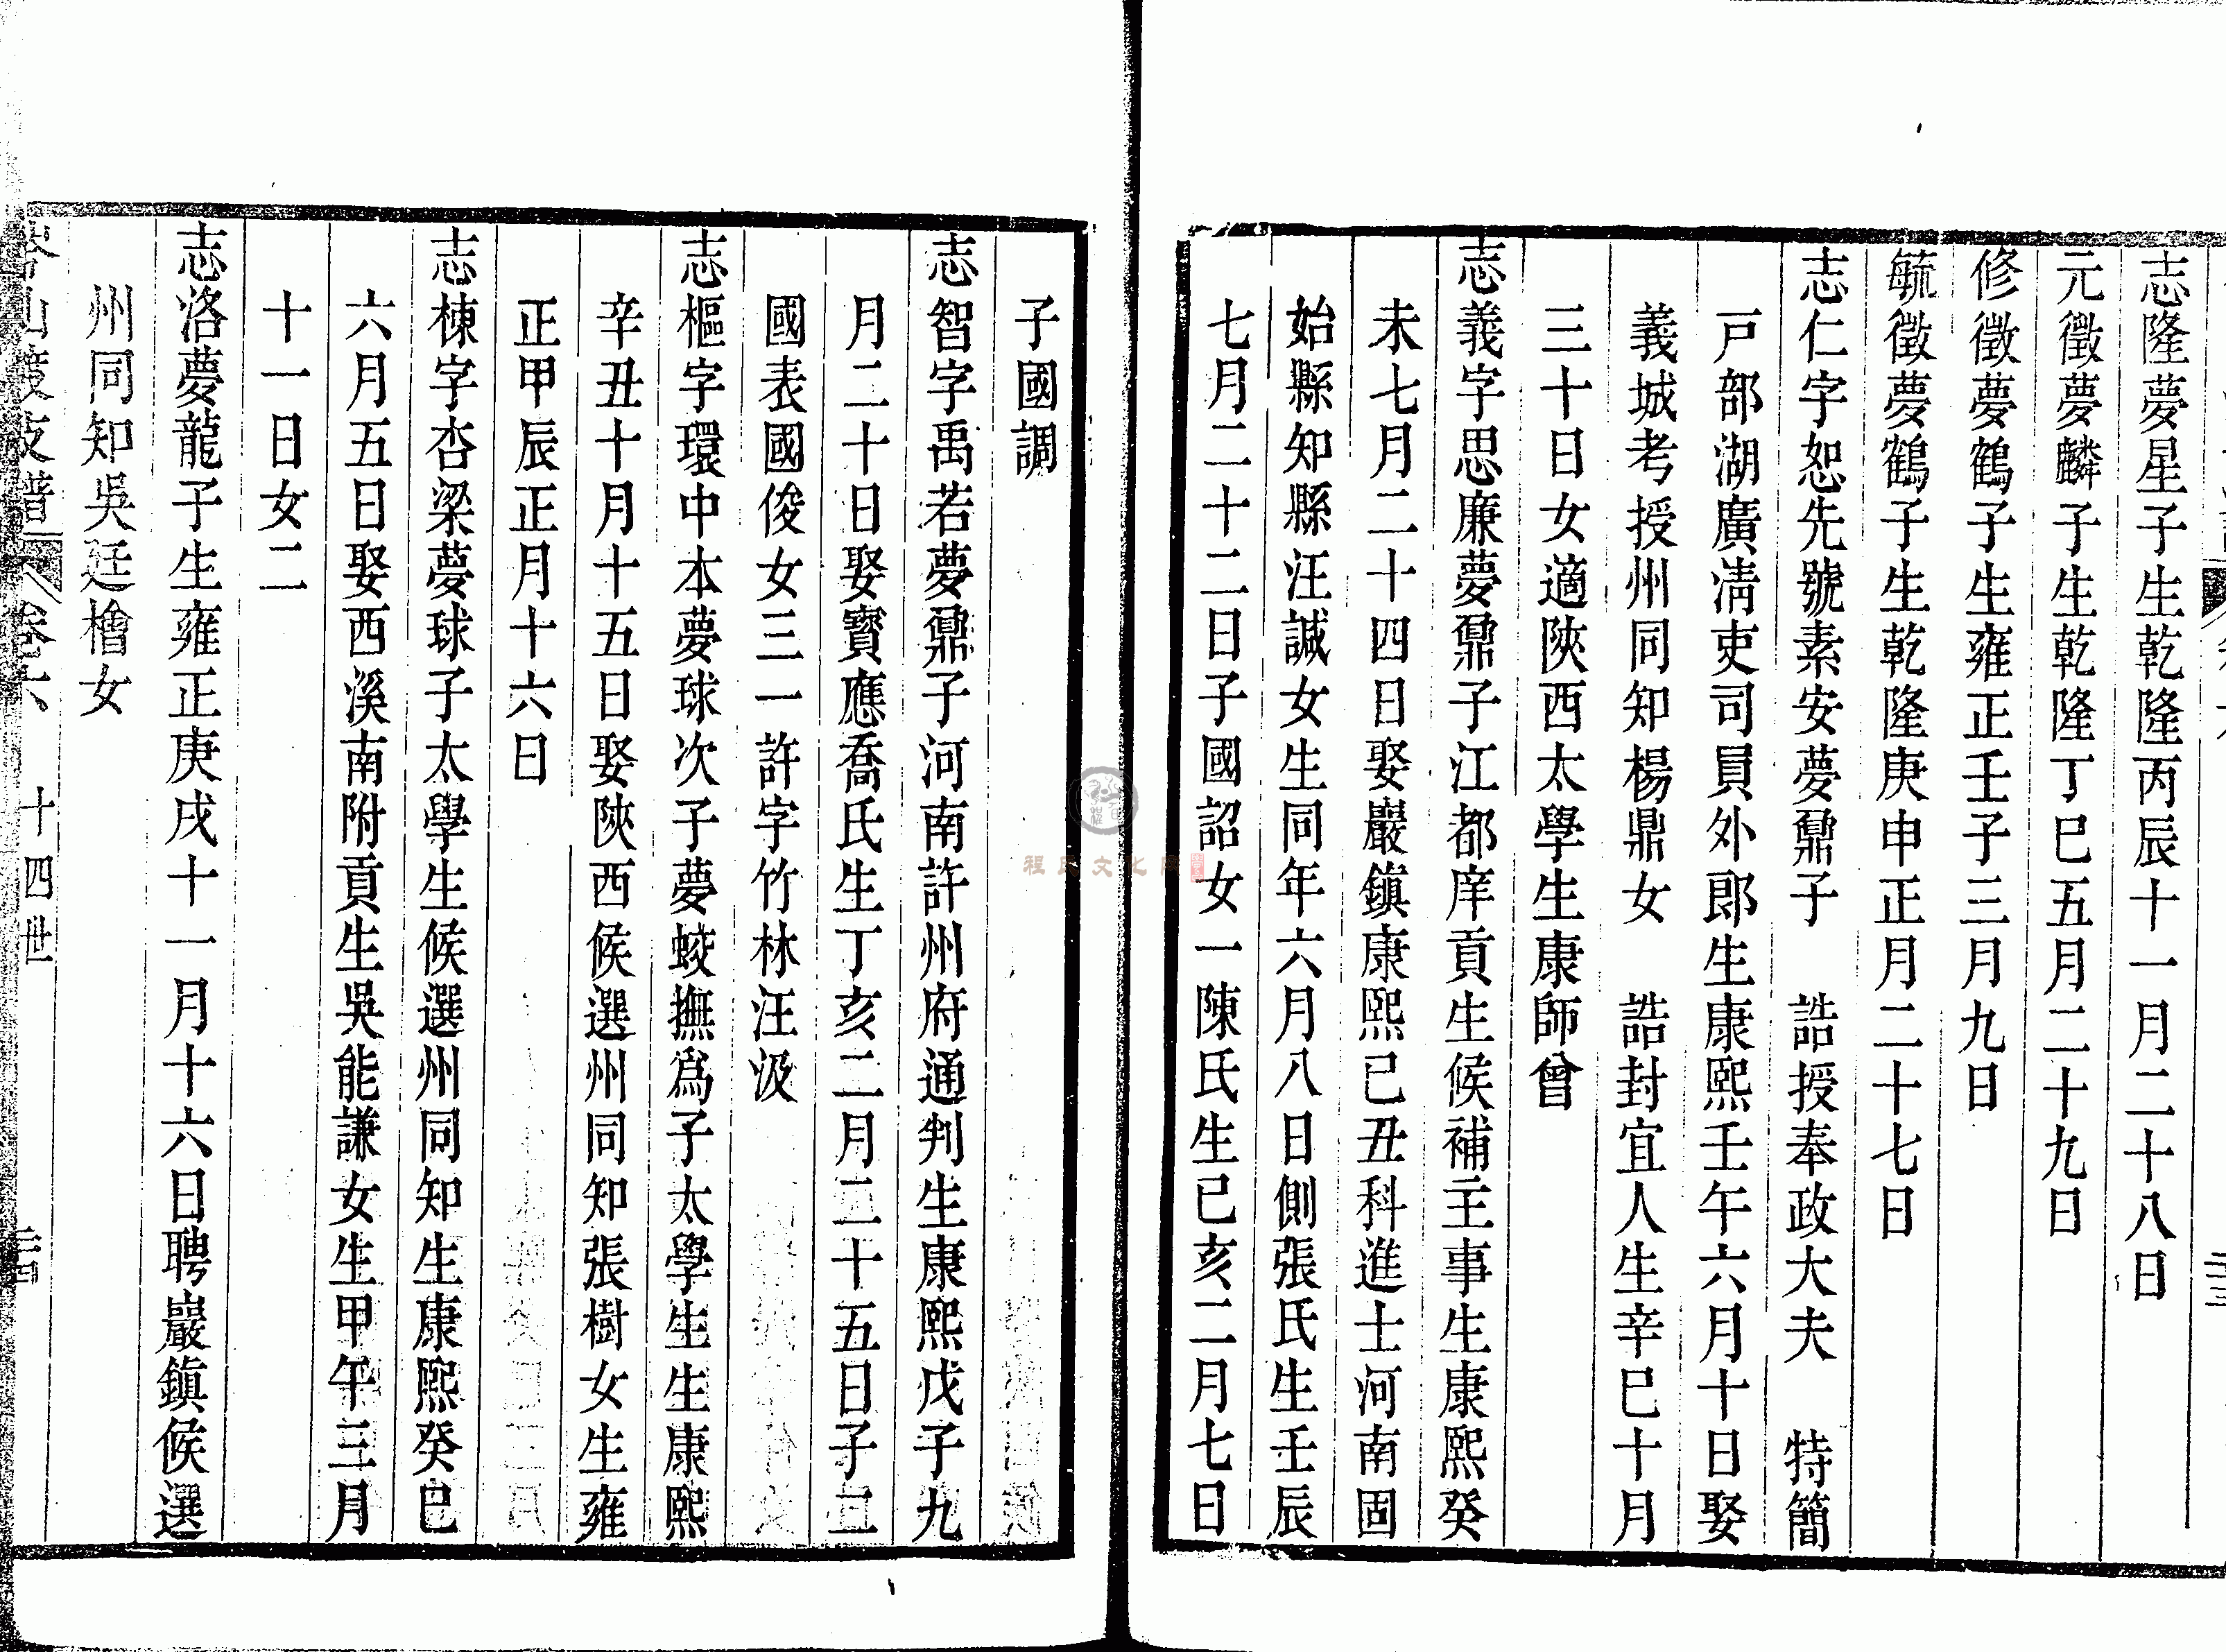 志隆夢星子生乾隆丙辰十一月二十八日
元徵夢麟子生乾隆丁巳五月二十九日
修徵夢鶴子生雍正壬子三月九日
毓徵夢鶴子生乾隆庚申正月二十七日
志仁字恕先號素安夢鼐子 誥授奉政大夫 特簡
戸部湖廣淸吏司員外郎生康熙壬午六月十日娶
義城考授州同知楊鼎女 誥封宜人生辛巳十月
三十日女適陝西太學生康師曾
志義字思廉夢鼐子江都庠貢生候補主事生康熙癸
未七月二十四日娶巖鎭康熙己丑科進士河南固
始縣知縣汪誠女生同年六月八日側張氏生壬辰
七月二十二日子國詔女一陳氏生己亥二月七日
子國調
志智字禹若夢鼐子河南許州府通判生康熙戊子九
月二十日娶寶應喬氏生丁亥二月二十五日子二
國表國俊女三一許字竹林汪汲
志樞字環中本夢球次子夢蛟撫爲子太學生生康熙
辛丑十月十五日娶陝西候選州同知張樹女生雍
正甲辰正月十六日
志棟字杏梁夢球子太學生候選州同知生康熙癸巳
六月五日娶西溪南附貢生吳能謙女生甲午三月
十一日女二
志洛夢龍子生雍正庚戌十一月十六日聘巖鎭候選
州同知吳廷檜女
山渡支譜 卷六 十四世 二十四
程氏文化